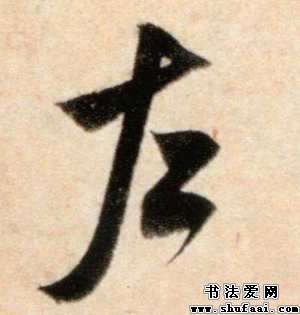 左
书法爱网
www.shufaai.com